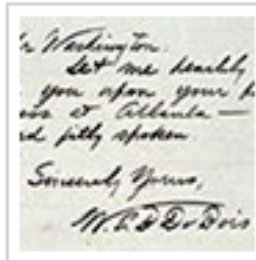 r Washington.
Let me heartily
you upon your
ss at Atlanta —
rd fitly spoken.
Sincerely Yours,
W. E. B. Du Bois